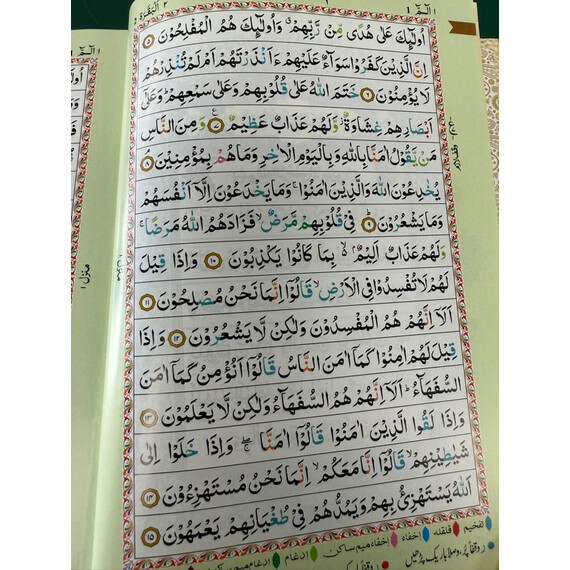 الٓمّٓ ١
٢ اَلْبَقَرَة
اُولٰٓئِكَ عَلٰى هُدًى مِّنْ رَّبِّهِمْ ۗ وَاُولٰٓئِكَ هُمُ الْمُفْلِحُوْنَ ۝٥
اِنَّ الَّذِيْنَ كَفَرُوْا سَوَآءٌ عَلَيْهِمْ ءَاَنْذَرْتَهُمْ اَمْ لَمْ تُنْذِرْهُمْ
لَا يُؤْمِنُوْنَ ۝٦ خَتَمَ اللّٰهُ عَلٰى قُلُوْبِهِمْ وَعَلٰى سَمْعِهِمْ ؕ وَعَلٰٓى
اَبْصَارِهِمْ غِشَاوَةٌ ؗ وَّلَهُمْ عَذَابٌ عَظِيْمٌ ۝٧ وَمِنَ النَّاسِ
مَنْ يَّقُوْلُ اٰمَنَّا بِاللّٰهِ وَبِالْيَوْمِ الْاٰخِرِ وَمَا هُمْ بِمُؤْمِنِيْنَ ۝٨
يُخٰدِعُوْنَ اللّٰهَ وَالَّذِيْنَ اٰمَنُوْا ۚ وَمَا يَخْدَعُوْنَ اِلَّآ اَنْفُسَهُمْ
وَمَا يَشْعُرُوْنَ ۝٩ فِيْ قُلُوْبِهِمْ مَّرَضٌ ۙ فَزَادَهُمُ اللّٰهُ مَرَضًا ۚ
وَلَهُمْ عَذَابٌ اَلِيْمٌ ۢ ۙ بِمَا كَانُوْا يَكْذِبُوْنَ ۝١٠ وَاِذَا قِيْلَ
لَهُمْ لَا تُفْسِدُوْا فِي الْاَرْضِ ۙ قَالُوْٓا اِنَّمَا نَحْنُ مُصْلِحُوْنَ ۝١١
اَلَآ اِنَّهُمْ هُمُ الْمُفْسِدُوْنَ وَلٰكِنْ لَّا يَشْعُرُوْنَ ۝١٢ وَاِذَا
قِيْلَ لَهُمْ اٰمِنُوْا كَمَآ اٰمَنَ النَّاسُ قَالُوْٓا اَنُؤْمِنُ كَمَآ اٰمَنَ
السُّفَهَآءُ ؕ اَلَآ اِنَّهُمْ هُمُ السُّفَهَآءُ وَلٰكِنْ لَّا يَعْلَمُوْنَ ۝١٣
وَاِذَا لَقُوا الَّذِيْنَ اٰمَنُوْا قَالُوْٓا اٰمَنَّا ۖۚ وَاِذَا خَلَوْا اِلٰى
شَيٰطِيْنِهِمْ ۙ قَالُوْٓا اِنَّا مَعَكُمْ ۙ اِنَّمَا نَحْنُ مُسْتَهْزِءُوْنَ ۝١٤
اَللّٰهُ يَسْتَهْزِئُ بِهِمْ وَيَمُدُّهُمْ فِيْ طُغْيَانِهِمْ يَعْمَهُوْنَ ۝١٥
تفخيم قلقله اخفاء اخفاء ميم ساكن ادغام ادغام ميم ساكن
منزل ١